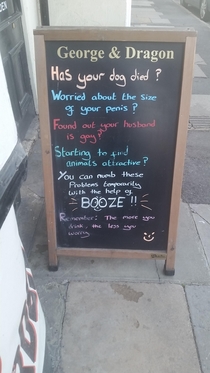 George & Dragon
Has your dog died ?
Worried about the size
of your penis ?
Found out your husband
is gay?
Starting to find
animals attractive?
You can numb these
Problems temporarily
with the help of
BOOZE !!
Remember: The more you
drink, the less you
worry